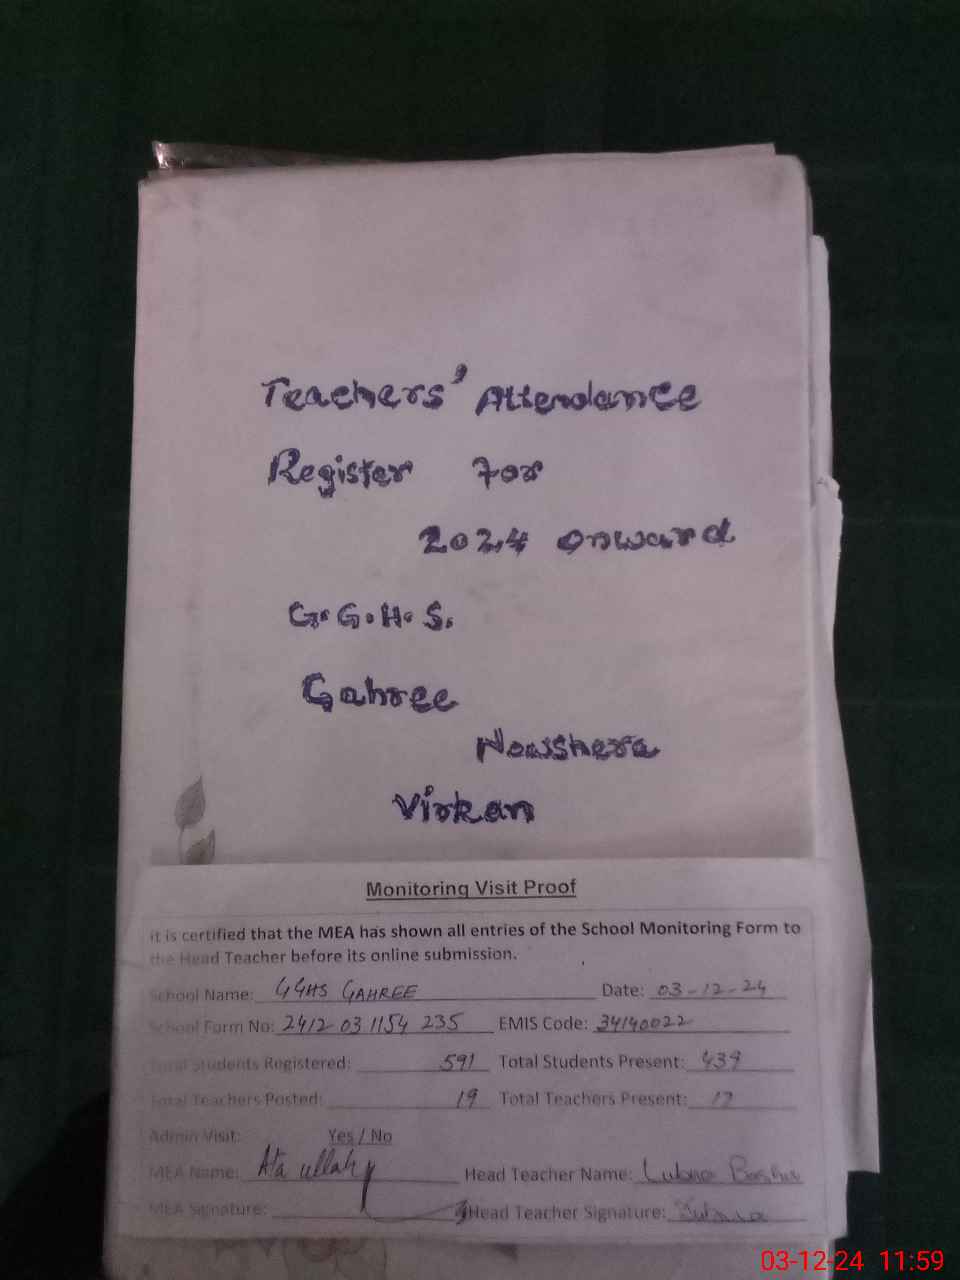 Teachers' Attendance
Register For
2024 onward
G.G.H.S.
Gahree
Nowshera
Virkan
Monitoring Visit Proof
It is certified that the MEA has shown all entries of the School Monitoring Form to
the Head Teacher before its online submission.
School Name: GGHS GAHREE Date: 03-12-24
School Form No: 2412 03 1154 235 EMIS Code: 34140022
Total Students Registered: 591 Total Students Present: 439
Total Teachers Posted: 19 Total Teachers Present: 17
Admin Visit: Yes / No
MEA Name: Ata ullah Head Teacher Name: Lubna Bashir
MEA Signature: Head Teacher Signature: Lubna
03-12-24 11:59